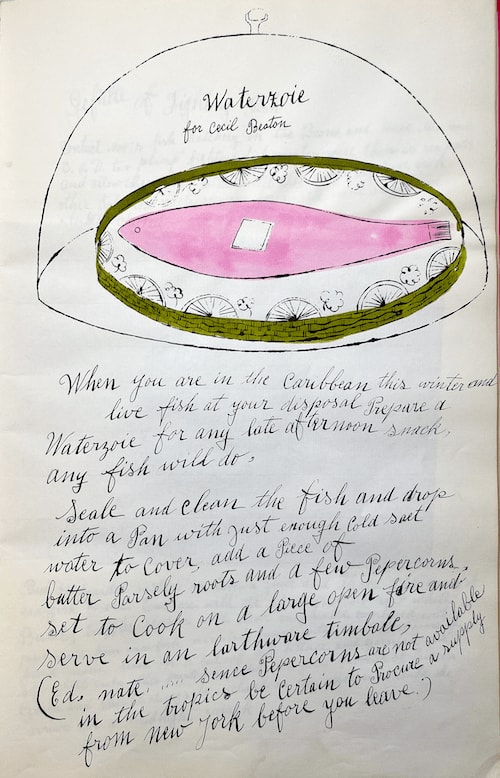 Waterzoie
for Cecil Beaton
When you are in the Caribbean this winter and
live fish at your disposal Prepare a
Waterzoie for any late afternoon snack,
any fish will do,
Scale and clean the fish and drop
into a Pan with just enough Cold salt
water to Cover, add a Piece of
butter Parsely roots and a few Pepercorns,
set to Cook on a large open fire and
serve in an earthware timbale,
(Ed. nate. .... sence Pepercorns are not available
in the tropics be certain to Procure a supply
from New York before you leave.)